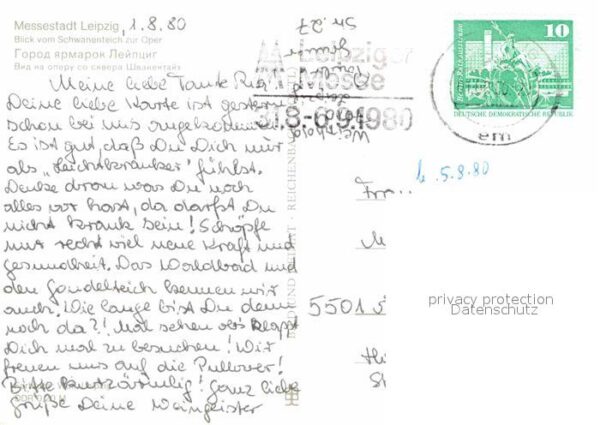 Messestadt Leipzig, 1.8.80
Blick vom Schwanenteich zur Oper
Город ярмарок Лейпциг
Вид на оперу со сквера Шванентайх
Meine liebe Tante
Deine liebe Karte ist gestern
schon bei uns angekommen.
Es ist gut, daß Du Dich nur
als „Leichtkranker" fühlst.
Denke dran was Du noch
alles vor hast, da darfst Du
nicht krank sein! Schöpfe
nur recht viel neue Kraft und
Gesundheit. Das Waldbad und
den Gondelteich kennen wir
auch. Wie lange bist Du denn
noch da?! Mal sehen ob's klappt
Dich mal zu besuchen! Wir
freuen uns auf die Pullover!
Bitte kurzärmlig! Ganz liebe
Grüße Deine
Leipziger
Messe
31.8.-6.9.1980
BILD UND HEIMAT REICHENBACH
10
DEUTSCHE DEMOKRATISCHE REPUBLIK
em
5.8.80
5501
privacy protection
Datenschutz